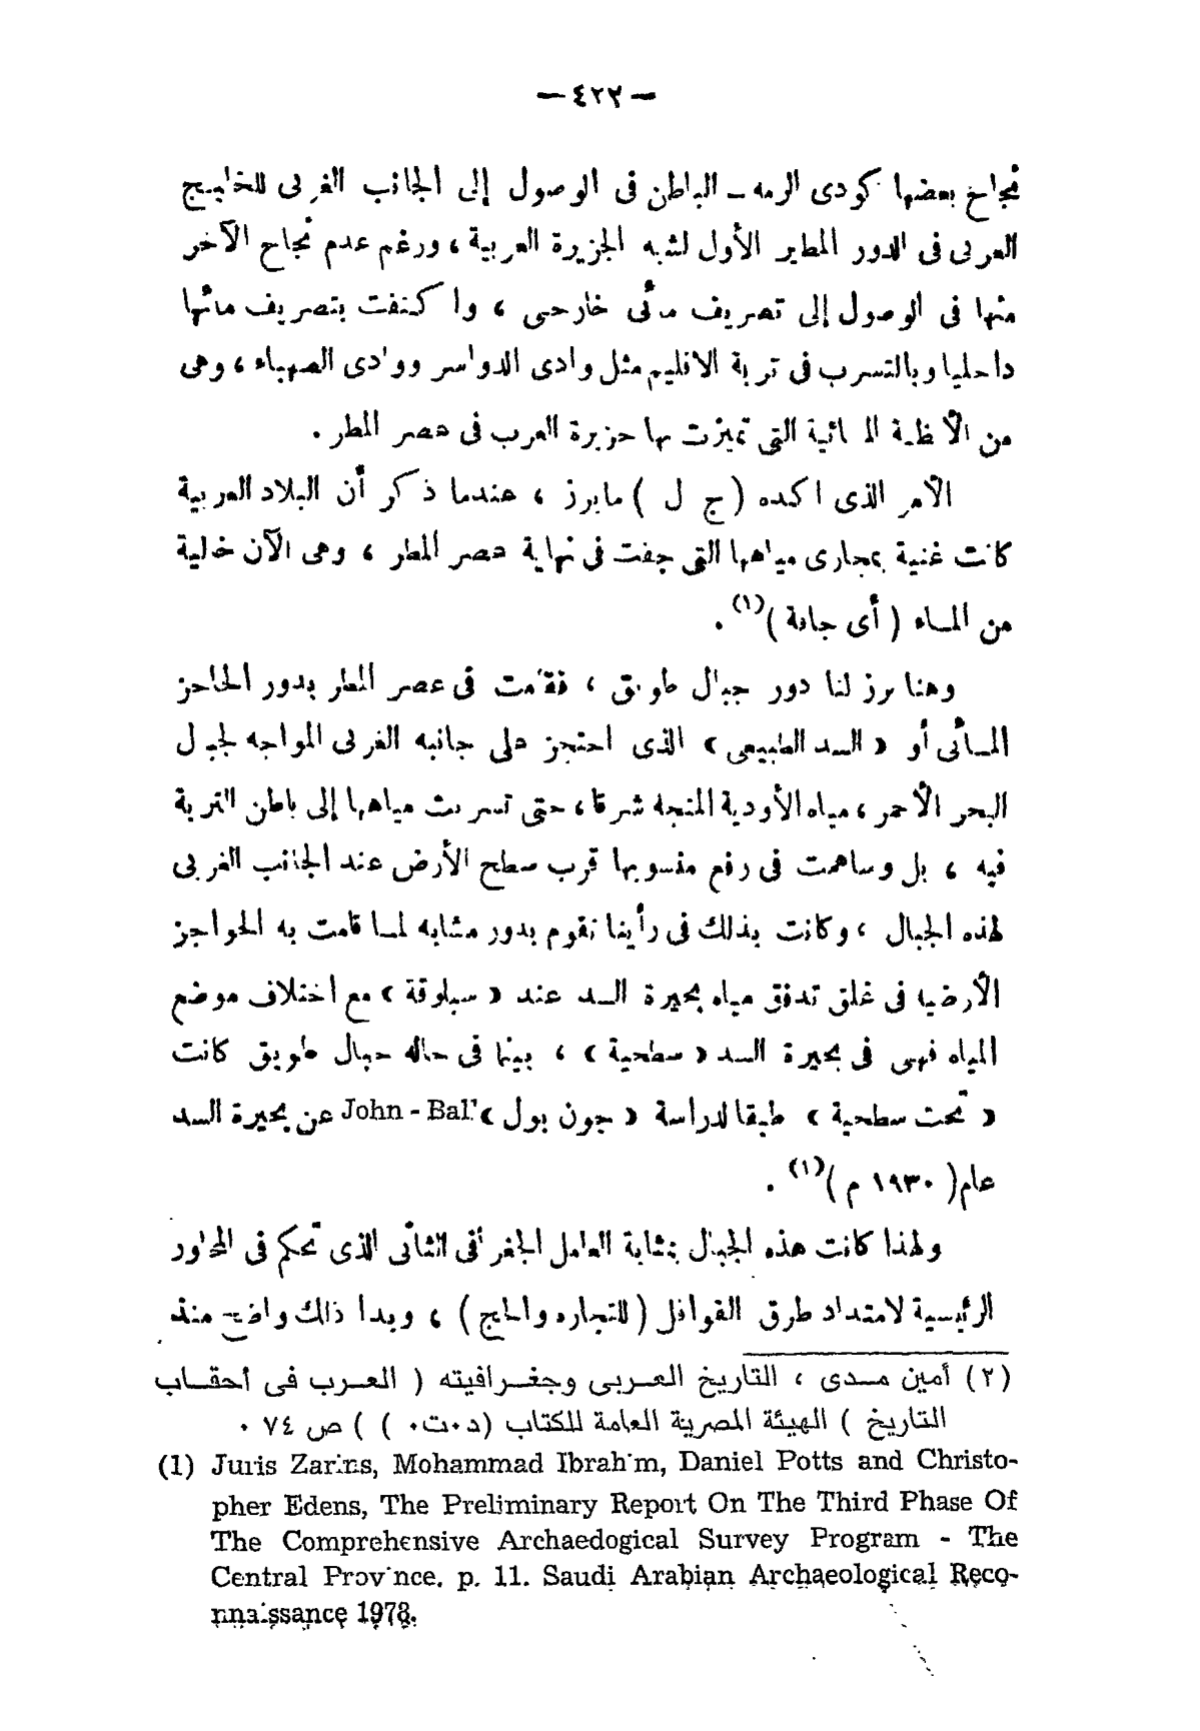 — ٤٢٢ —
نجاح بعضها كودى الرمه ــ الباطن فى الوصول إلى الجانب الغربى للخليج
العربى فى الدور المطير الأول لشبه الجزيرة العربية ، ورغم عدم نجاح الآخر
منها فى الوصول إلى تصريف مائى خارجى ، واكتفت بتصريف مائها
داخليا وبالتسرب فى تربة الاقليم مثل وادى الدواسر ووادى الصهباء ، وهى
من الأنظمة المائية التى تميزت بها جزيرة العرب فى عصر المطر .
الأمر الذى اكده ( ج ل ) مايرز ، عندما ذكر أن البلاد العربية
كانت غنية بمجارى مياهها التى جفت فى نهاية عصر المطر ، وهى الآن خالية
من المـاء ( أى جافة )(١) .
وهنا برز لنا دور جبال طويق ، فقامت فى عصر المطر بدور الحاجز
المـائى أو « السد الطبيعى » الذى احتجز على جانبه الغربى المواجه لجبال
البحر الأحمر ، مياه الأودية المتجه شرقا ، حتى تسربت مياهها إلى باطن التربة
فيه ، بل وساهمت فى رفع منسوبها قرب سطح الأرض عند الجانب الغربى
لهذه الجبال ، وكانت بذلك فى رأينا تقوم بدور مشابه لمـا قامت به الحواجز
الأرضية فى غلق تدفق مياه بحيرة السـد عند « سيلوقة » مع اختلاف موضع
المياه فهى فى بحيرة السد « سطحية » ، بينما فى حاله جبال طويق كانت
« تحت سطحية » طبقا لدراسة « جون بول » John - Bal' عن بحيرة السد
عام ( ١٩٣٠ م )(١) .
ولهذا كانت هذه الجبال بمثابة العامل الجغرافى الثانى الذى تحكم فى المحاور
الرئيسية لامتداد طرق القوافل ( للتجاره والحج ) ، وبدا ذلك واضح منذ
(٢) أمين مـدى ، التاريخ العربى وجغـرافيته ( العـرب فى أحقـاب
التاريخ ) الهيئة المصرية العامة للكتاب (د٠ت٠ ) ) ص ٧٤ ٠
(1) Juris Zarins, Mohammad Ibrahim, Daniel Potts and Christo-
pher Edens, The Preliminary Report On The Third Phase Of
The Comprehensive Archaedogical Survey Program - The
Central Province. p. 11. Saudi Arabian Archaeological Reco-
nnaissance 1978.